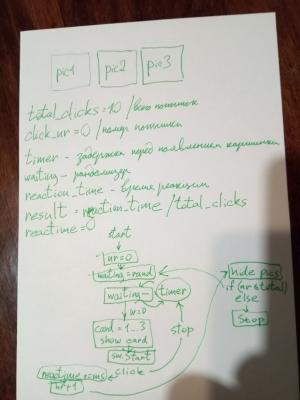 pic1 pic2 pic3
total_clicks=10 /всего попыток
click_nr=0 /номер попытки
timer - задержка перед появлением картинки
waiting - рандомизер
reaction_time - время реакции
result = reaction_time /total_clicks
reactime=0
start
nr=0
waiting=rand
waiting-- timer
w=0
card = 1...3
show card
sw.Start
click
reactime=ms
nr+1
stop
hide pics
if (nr≤total)
else
Stop